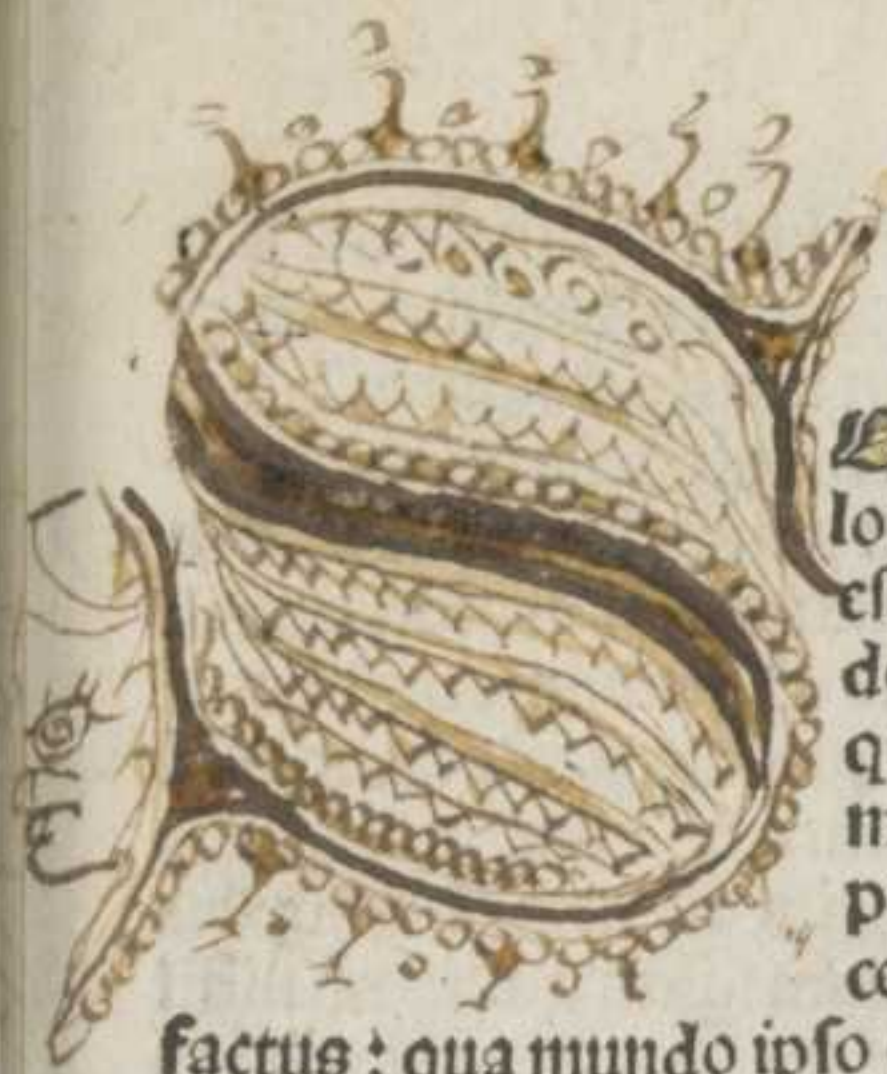 S
lo
eſ
de
q
m
p
ce
factus : qua mundo ipſo